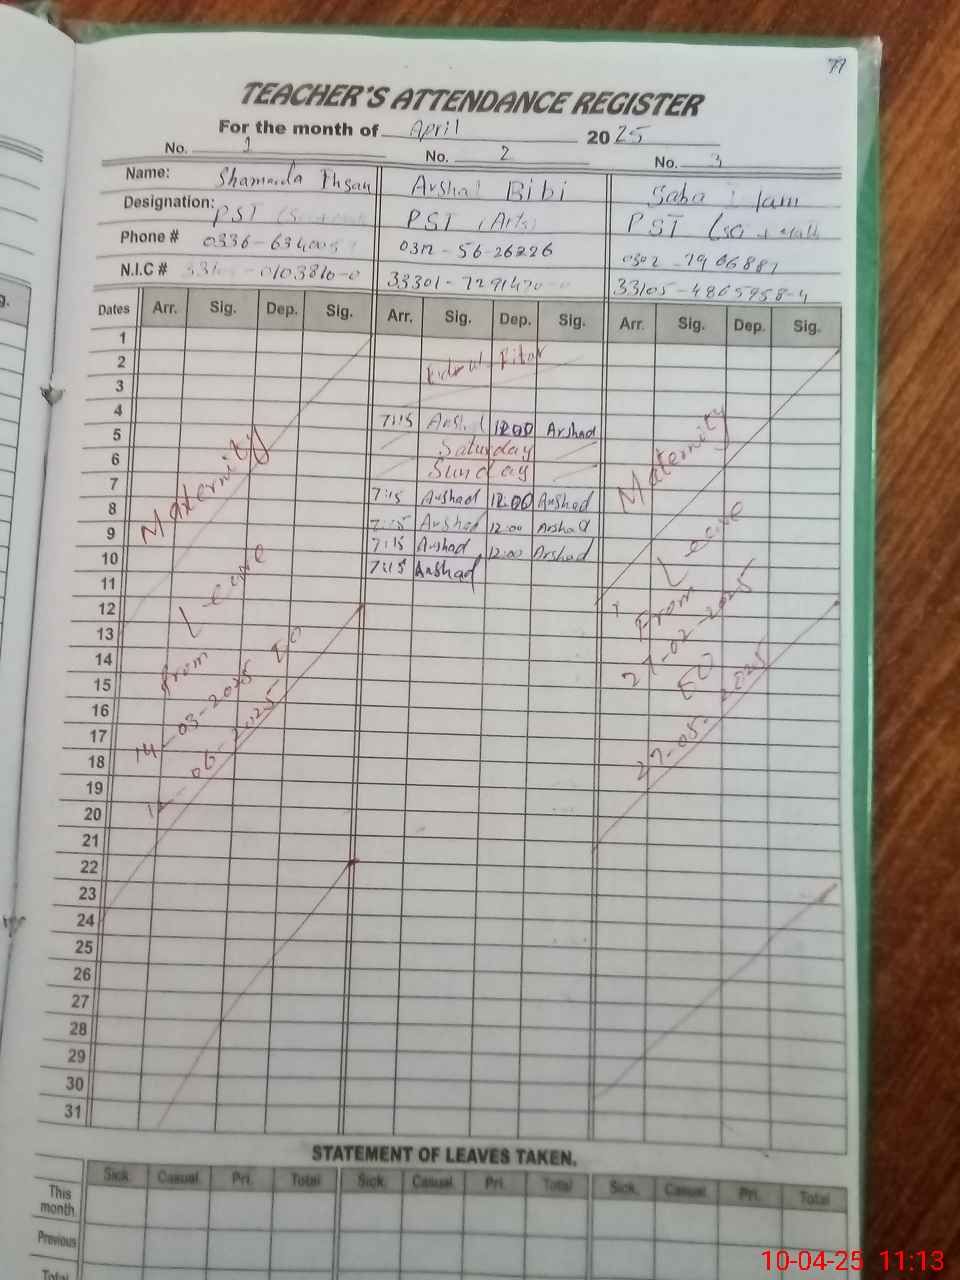 77
TEACHER'S ATTENDANCE REGISTER
For the month of April 2025
No. 1 No. 2 No. 3
Name: Ihsan Arshad Bibi Saba
Designation: PST PST (Arts) PST
Phone # 0336- 0312-56-26226 0302-7906887
N.I.C # -0103810-0 33301- 33105-4865958-4
Dates Arr. Sig. Dep. Sig. Arr. Sig. Dep. Sig. Arr. Sig. Dep. Sig.
1
2
3
4 7:15 Arshad 12:00 Arshad
5 Saturday
6 Sunday
7 7:15 Arshad 12:00 Arshad
8 7:15 Arshad 12:00 Arshad
9 7:15 Arshad 12:00 Arshad
10 7:15 Arshad
11
12
13
14
15
16
17
18
19
20
21
22
23
24
25
26
27
28
29
30
31
Maternity
Leave
from
14-03-2025 TO
-06-2025
Maternity
Leave
From
27-02-2025
TO
27-05-2025
STATEMENT OF LEAVES TAKEN.
Sick. Casual. Pri. Total Sick. Casual. Pri. Total Sick. Casual. Pri. Total
This month
Previous
Total
10-04-25 11:13